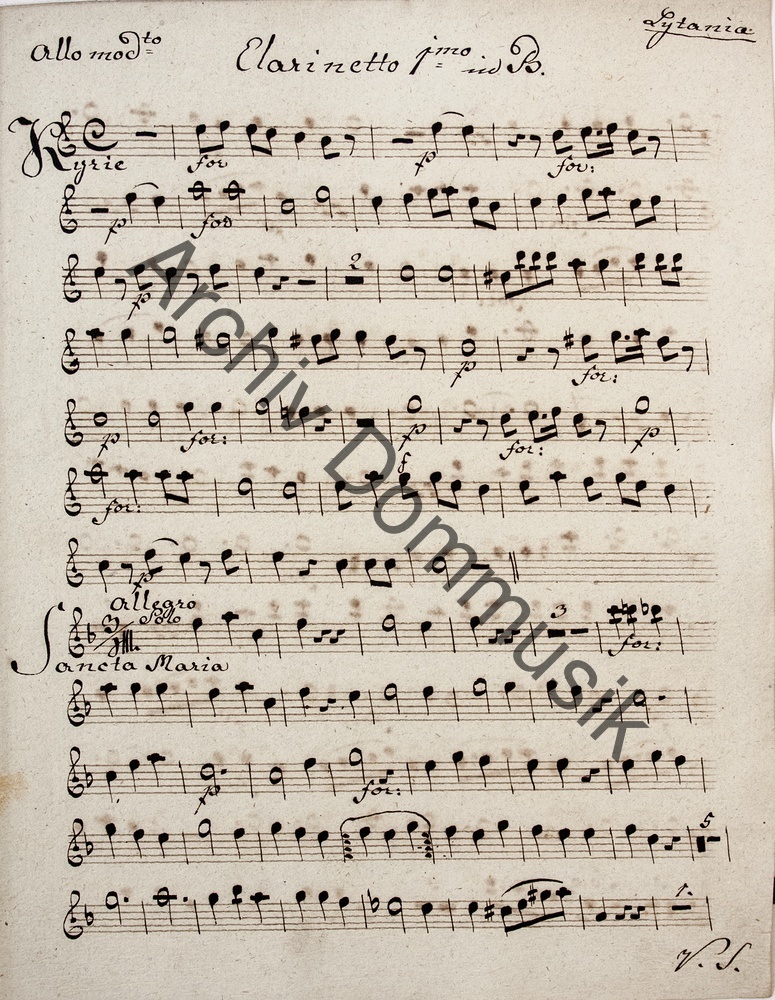 Lytania
Allo modto
Clarinetto 1mo in B.
Kyrie
for p for:
p for
2
p
p for:
p for: p for: p
for: f
p
Allegro
Solo
3
3
for:
Sancta Maria
p for:
5
1.
V. S.
Archiv Dommusik